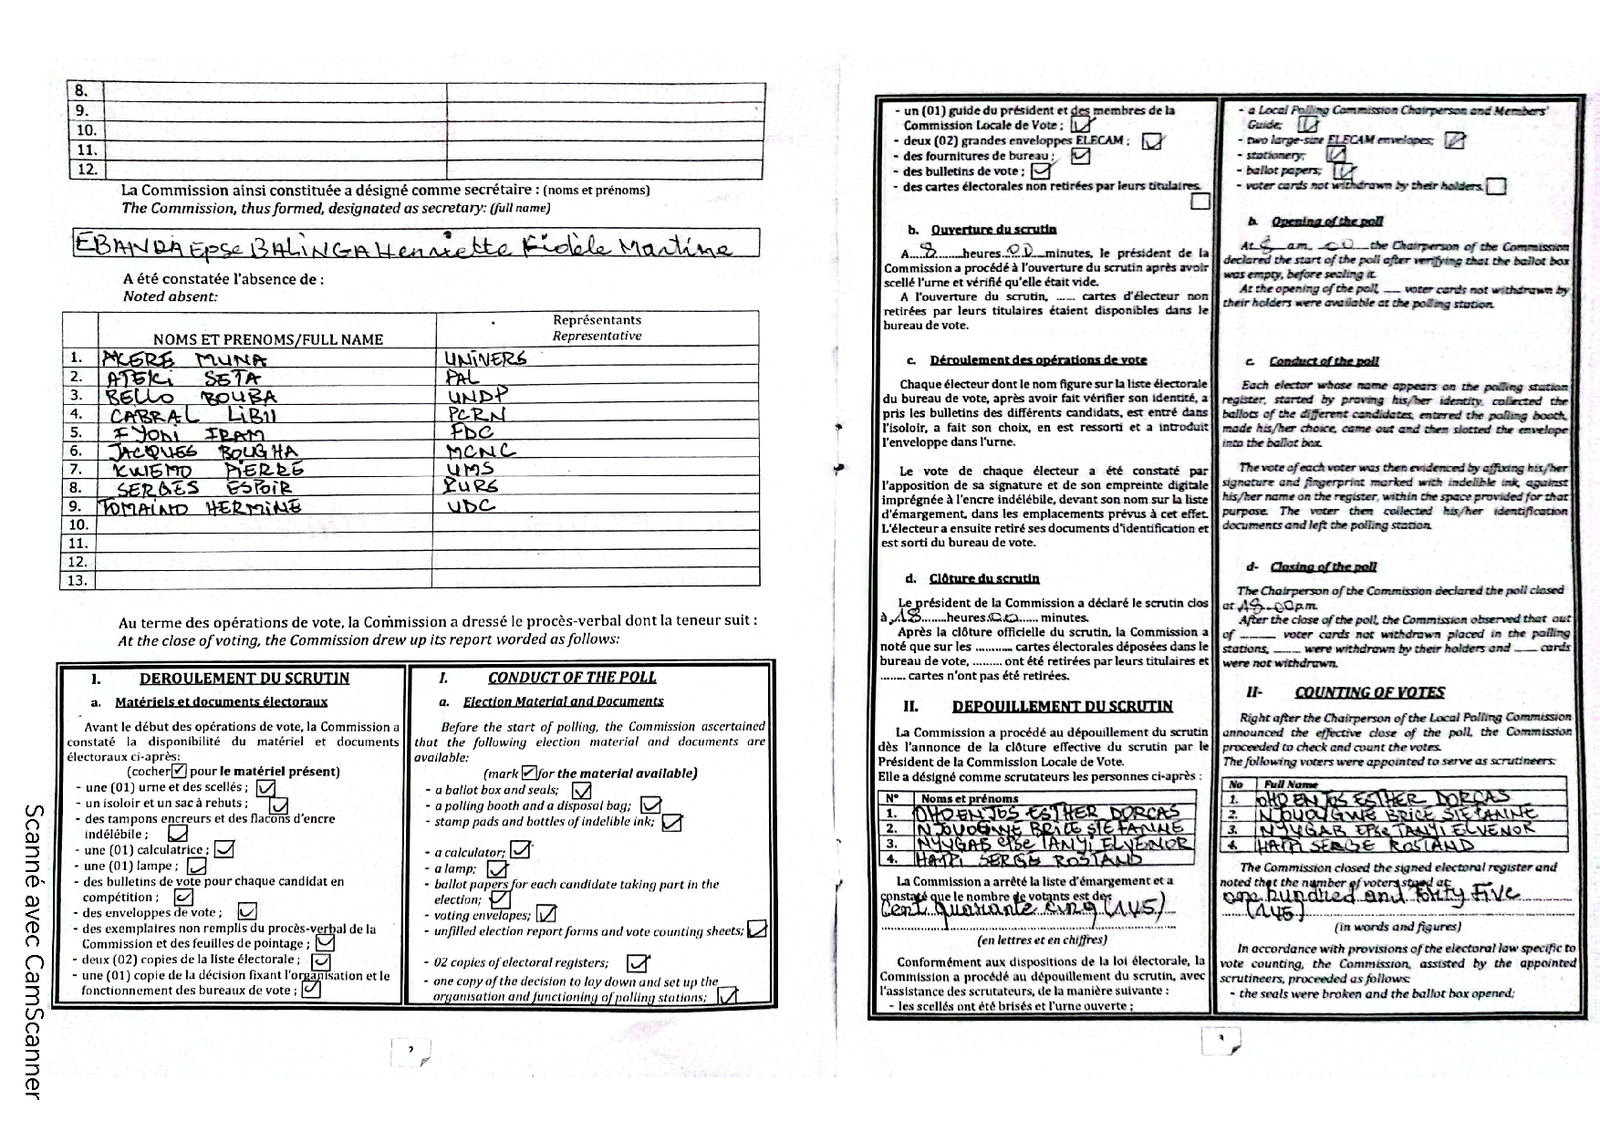 8.
9.
10.
11.
12.
La Commission ainsi constituée a désigné comme secrétaire : (noms et prénoms)
The Commission, thus formed, designated as secretary: (full name)
EBANDA Epse BALINGA Henriette Fidèle Martine
A été constatée l'absence de :
Noted absent:
NOMS ET PRENOMS/FULL NAME Représentants
Representative
1. AKERE MUNA UNIVERS
2. ATEKI SETA PAL
3. BELLO BOUBA UNDP
4. CABRAL LiBII PCRN
5. IYODI IRAM FDC
6. JACQUES BOUGHA MCNC
7. KWEMO PIERRE UMS
8. SERGES ESPOIR PURS
9. TOMAINO HERMINE UDC
10.
11.
12.
13.
Au terme des opérations de vote, la Commission a dressé le procès-verbal dont la teneur suit :
At the close of voting, the Commission drew up its report worded as follows:
I. DEROULEMENT DU SCRUTIN
a. Matériels et documents électoraux
Avant le début des opérations de vote, la Commission a
constaté la disponibilité du matériel et documents
électoraux ci-après:
(cocher ☑ pour le matériel présent)
- une (01) urne et des scellés ; ☑
- un isoloir et un sac à rebuts ; ☑
- des tampons encreurs et des flacons d'encre
indélébile ; ☑
- une (01) calculatrice ; ☑
- une (01) lampe ; ☑
- des bulletins de vote pour chaque candidat en
compétition ; ☑
- des enveloppes de vote ; ☑
- des exemplaires non remplis du procès-verbal de la
Commission et des feuilles de pointage ; ☑
- deux (02) copies de la liste électorale ; ☑
- une (01) copie de la décision fixant l'organisation et le
fonctionnement des bureaux de vote ; ☑
I. CONDUCT OF THE POLL
a. Election Material and Documents
Before the start of polling, the Commission ascertained
that the following election material and documents are
available:
(mark ☑ for the material available)
- a ballot box and seals; ☑
- a polling booth and a disposal bag; ☑
- stamp pads and bottles of indelible ink; ☑
- a calculator; ☑
- a lamp; ☑
- ballot papers for each candidate taking part in the
election; ☑
- voting envelopes; ☑
- unfilled election report forms and vote counting sheets; ☑
- 02 copies of electoral registers; ☑
- one copy of the decision to lay down and set up the
organisation and functioning of polling stations; ☑
2
- un (01) guide du président et des membres de la
Commission Locale de Vote ; ☑
- deux (02) grandes enveloppes ELECAM ; ☑
- des fournitures de bureau ; ☑
- des bulletins de vote ; ☑
- des cartes électorales non retirées par leurs titulaires.
☐
b. Ouverture du scrutin
A...8......heures..00..minutes, le président de la
Commission a procédé à l'ouverture du scrutin après avoir
scellé l'urne et vérifié qu'elle était vide.
A l'ouverture du scrutin, ..... cartes d'électeur non
retirées par leurs titulaires étaient disponibles dans le
bureau de vote.
c. Déroulement des opérations de vote
Chaque électeur dont le nom figure sur la liste électorale
du bureau de vote, après avoir fait vérifier son identité, a
pris les bulletins des différents candidats, est entré dans
l'isoloir, a fait son choix, en est ressorti et a introduit
l'enveloppe dans l'urne.
Le vote de chaque électeur a été constaté par
l'apposition de sa signature et de son empreinte digitale
imprégnée à l'encre indélébile, devant son nom sur la liste
d'émargement, dans les emplacements prévus à cet effet.
L'électeur a ensuite retiré ses documents d'identification et
est sorti du bureau de vote.
d. Clôture du scrutin
Le président de la Commission a déclaré le scrutin clos
à .18......heures.00..... minutes.
Après la clôture officielle du scrutin, la Commission a
noté que sur les ........... cartes électorales déposées dans le
bureau de vote, ........ ont été retirées par leurs titulaires et
....... cartes n'ont pas été retirées.
II. DEPOUILLEMENT DU SCRUTIN
La Commission a procédé au dépouillement du scrutin
dès l'annonce de la clôture effective du scrutin par le
Président de la Commission Locale de Vote.
Elle a désigné comme scrutateurs les personnes ci-après :
N° Noms et prénoms
1. OHO ENJOS ESTHER DORCAS
2. NJOUOGWE BRICE STEFANNE
3. NYUGAB epse TANYI ELVENOR
4. HAPPI SERGE ROSTAND
La Commission a arrêté la liste d'émargement et a
constaté que le nombre de votants est de:
Cent quarante cinq (145)
(en lettres et en chiffres)
Conformément aux dispositions de la loi électorale, la
Commission a procédé au dépouillement du scrutin, avec
l'assistance des scrutateurs, de la manière suivante :
- les scellés ont été brisés et l'urne ouverte ;
- a Local Polling Commission Chairperson and Members'
Guide; ☑
- two large-size ELECAM envelopes; ☑
- stationery; ☑
- ballot papers; ☑
- voter cards not withdrawn by their holders. ☐
b. Opening of the poll
At 8 a.m, 00 the Chairperson of the Commission
declared the start of the poll after verifying that the ballot box
was empty, before sealing it.
At the opening of the poll, ___ voter cards not withdrawn by
their holders were available at the polling station.
c. Conduct of the poll
Each elector whose name appears on the polling station
register, started by proving his/her identity, collected the
ballots of the different candidates, entered the polling booth,
made his/her choice, came out and then slotted the envelope
into the ballot box.
The vote of each voter was then evidenced by affixing his/her
signature and fingerprint marked with indelible ink, against
his/her name on the register, within the space provided for that
purpose. The voter then collected his/her identification
documents and left the polling station.
d- Closing of the poll
The Chairperson of the Commission declared the poll closed
at 18 00 p.m.
After the close of the poll, the Commission observed that out
of ______ voter cards not withdrawn placed in the polling
stations, ____ were withdrawn by their holders and ____ cards
were not withdrawn.
II- COUNTING OF VOTES
Right after the Chairperson of the Local Polling Commission
announced the effective close of the poll, the Commission
proceeded to check and count the votes.
The following voters were appointed to serve as scrutineers:
No Full Name
1. OHO ENJOS ESTHER DORCAS
2. NJOUOGWE BRICE STEFANNE
3. NYUGAB epse TANYI ELVENOR
4. HAPPI SERGE ROSTAND
The Commission closed the signed electoral register and
noted that the number of voters stood at
one hundred and forty Five
(145)
(in words and figures)
In accordance with provisions of the electoral law specific to
vote counting, the Commission, assisted by the appointed
scrutineers, proceeded as follows:
- the seals were broken and the ballot box opened;
3
Scanné avec CamScanner